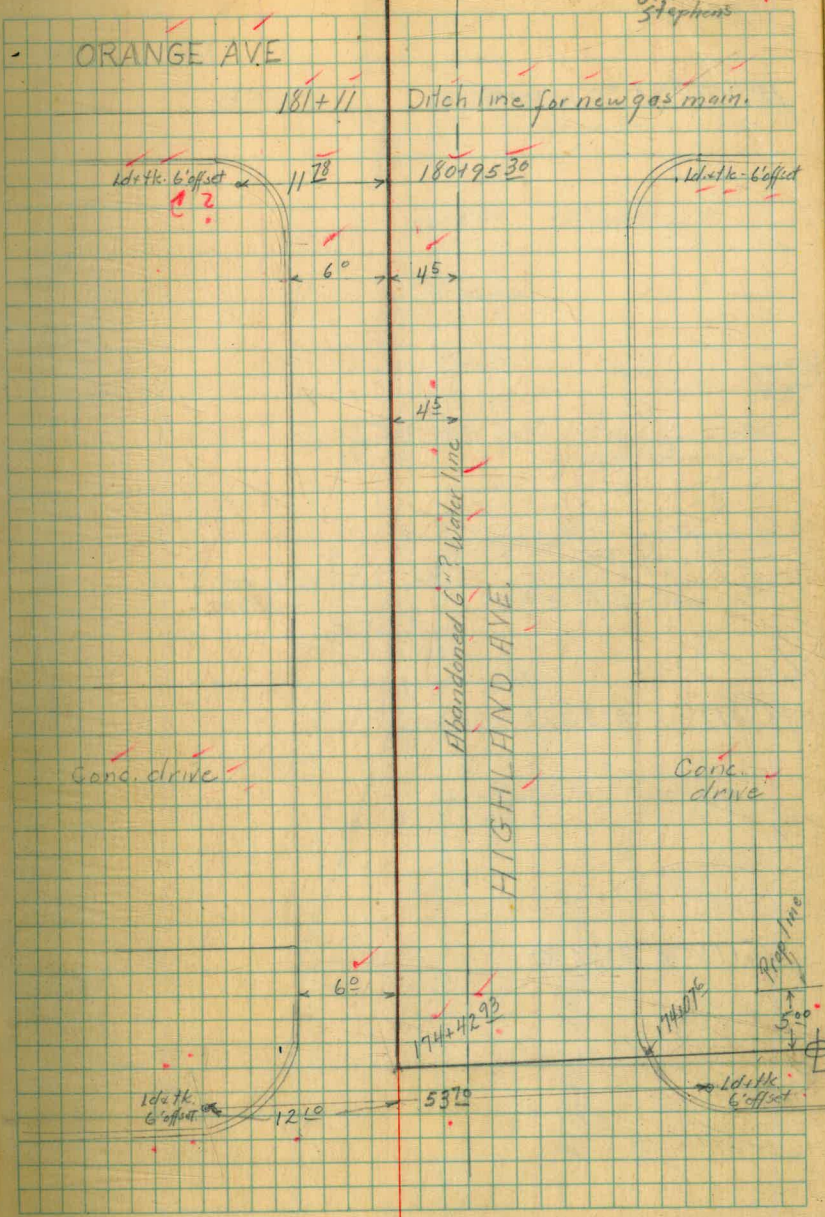 Stephens
ORANGE AVE
181+11 Ditch line for new gas main.
Ld+tk. 6' offset
11 78
180+95 30
Ld.+tk-6' offset
1 ?
6 0
4 5
4 5
Abandoned 6"? Water line
HIGHLAND AVE.
Conc. drive
Conc.
drive
Prop line
6 0
174+42 93
174+07 6
5 00
Ld+tk.
6' offset
12 10
53 70
Ld+tk.
6' offset